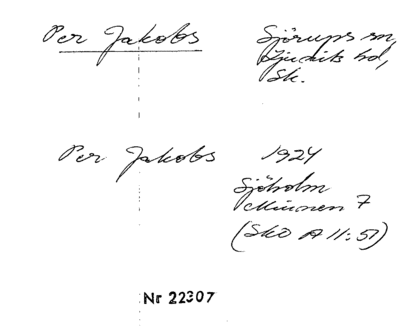 Per Jakobs Sjörups sn,
Ljunits hd,
Sk.
Per Jakobs 1924
Sjöholm
Minnen 7
(SkO A 11:51)
Nr 22307